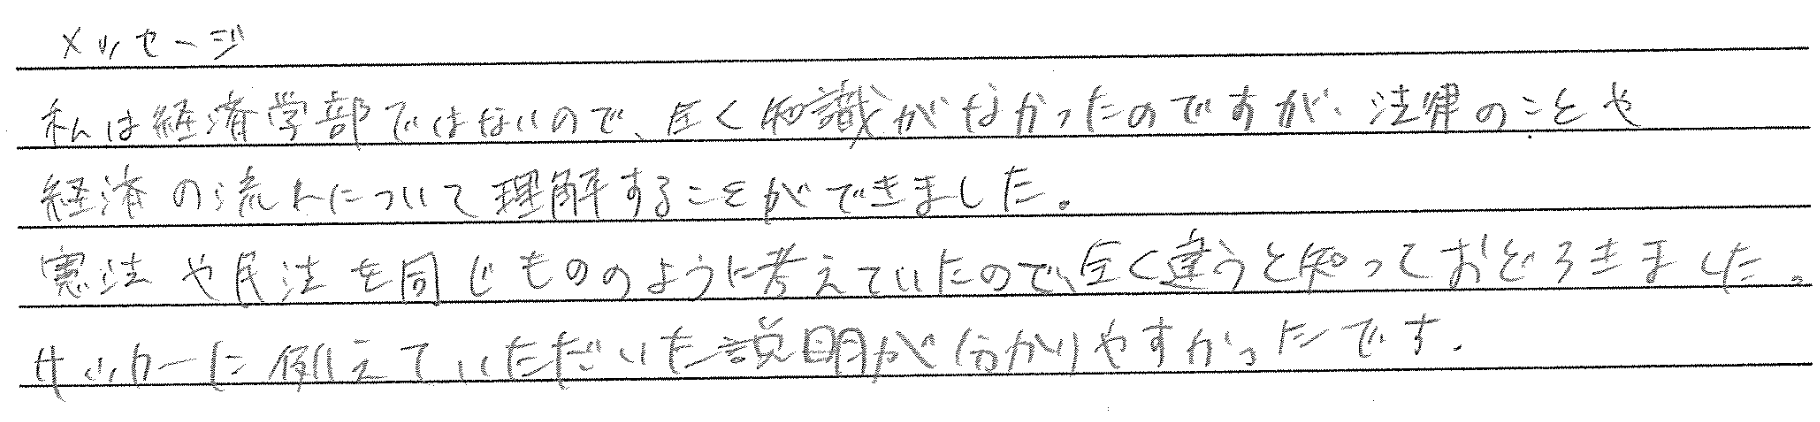 メッセージ
私は経済学部ではないので、全く知識がなかったのですが、法律のことや
経済の流れについて理解することができました。
憲法や民法を同じもののように考えていたので、全く違うと知っておどろきました。
サッカーに例えていただいた説明が分かりやすかったです。